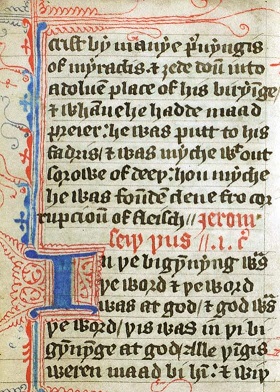 crist by manye p̃uyngis
of myraclis ⁊ ȝede doun into
a doluen place of his biryinge/
⁊ whãne he hadde maad
preier: he was putt to his
fadris/ ⁊ was myche wᵗ out
sorowe of deeþ: hou myche
he was founden clene fro cor
rupcioun of fleisch // Jerom
seiþ þus // .i. c̃
In þe bigynnyng was
þe word ⁊ þe word
was at god/ ⁊ god was
þe word/ þis was in þe bi
gynnynge at god/ alle þingis
weren maad bi hĩ: ⁊ wiþ